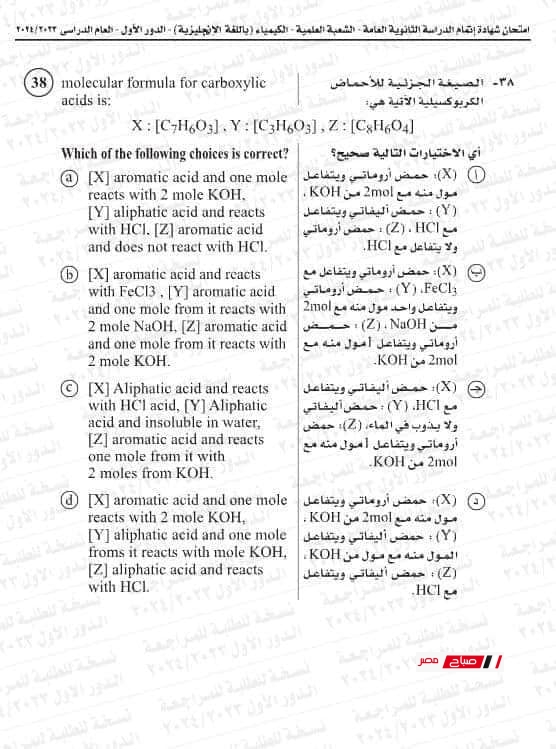 امتحان شهادة إتمام الدراسة الثانوية العامة - الشعبة العلمية - الكيمياء (باللغة الإنجليزية) - الدور الأول - العام الدراسى ٢٠٢٤/٢٠٢٣
38 molecular formula for carboxylic
acids is:
٣٨- الصيغة الجزئية للأحماض
الكربوكسيلية الآتية هي:
X : [C₇H₆O₃] , Y : [C₃H₆O₃] , Z : [C₈H₆O₄]
Which of the following choices is correct?
أي الاختيارات التالية صحيح؟
a [X] aromatic acid and one mole
reacts with 2 mole KOH,
[Y] aliphatic acid and reacts
with HCl, [Z] aromatic acid
and does not react with HCl.
أ (X): حمض أروماتي ويتفاعل
مول منه مع 2mol من KOH ،
(Y): حمض أليفاتي ويتفاعل
مع HCl ، (Z): حمض أروماتي
ولا يتفاعل مع HCl.
b [X] aromatic acid and reacts
with FeCl3 , [Y] aromatic acid
and one mole from it reacts with
2 mole NaOH, [Z] aromatic acid
and one mole from it reacts with
2 mole KOH.
ب (X): حمض أروماتي ويتفاعل مع
FeCl₃، (Y): حمض أروماتي
ويتفاعل واحد مول منه مع 2mol
من NaOH ، (Z): حمض
أروماتي ويتفاعل 1مول منه مع
2mol من KOH.
c [X] Aliphatic acid and reacts
with HCl acid, [Y] Aliphatic
acid and insoluble in water,
[Z] aromatic acid and reacts
one mole from it with
2 moles from KOH.
ج (X): حمض أليفاتي ويتفاعل
مع HCl، (Y): حمض أليفاتي
ولا يذوب في الماء، (Z): حمض
أروماتي ويتفاعل 1مول منه مع
2mol من KOH.
d [X] aromatic acid and one mole
reacts with 2 mole KOH,
[Y] aliphatic acid and one mole
froms it reacts with mole KOH,
[Z] aliphatic acid and reacts
with HCl.
د (X): حمض أروماتي ويتفاعل
مول منه مع 2mol من KOH ،
(Y): حمض أليفاتي ويتفاعل
المول منه مع مول من KOH ،
(Z): حمض أليفاتي ويتفاعل
مع HCl.
نسخة للطلبة للمراجعة
الدور الأول ٢٠٢٤/٢٠٢٣
صباح مصر